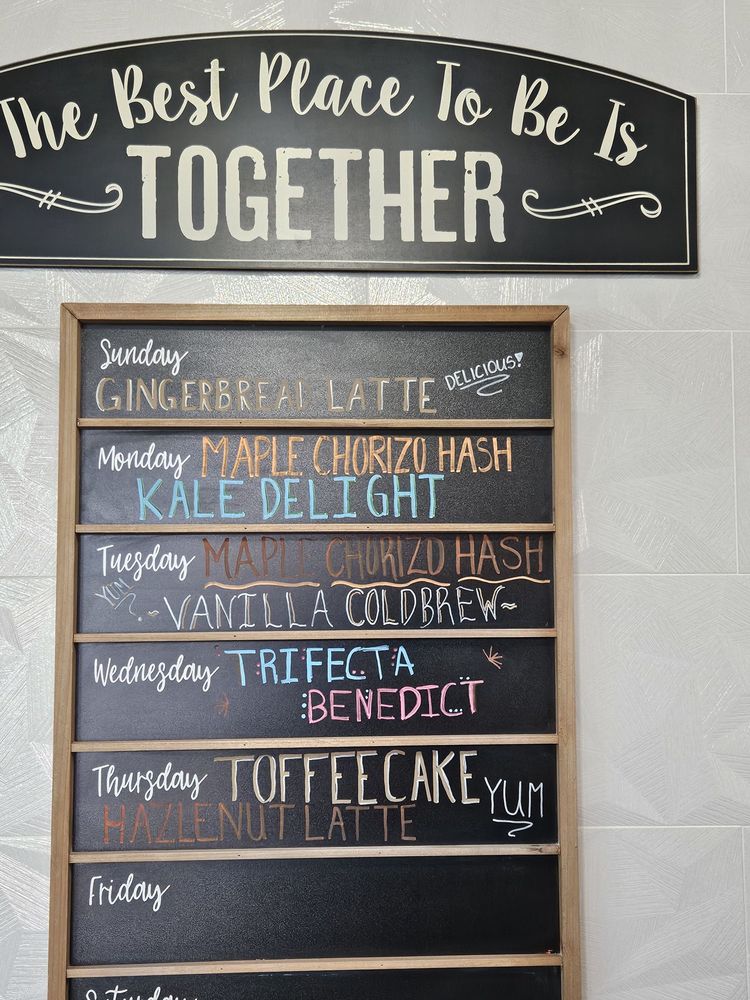 The Best Place To Be Is
TOGETHER
Sunday
GINGERBREAD LATTE
DELICIOUS!
Monday MAPLE CHORIZO HASH
KALE DELIGHT
Tuesday MAPLE CHORIZO HASH
YUM
~VANILLA COLDBREW~
Wednesday TRIFECTA
BENEDICT
Thursday TOFFEECAKE
YUM
HAZLENUT LATTE
Friday
Saturday